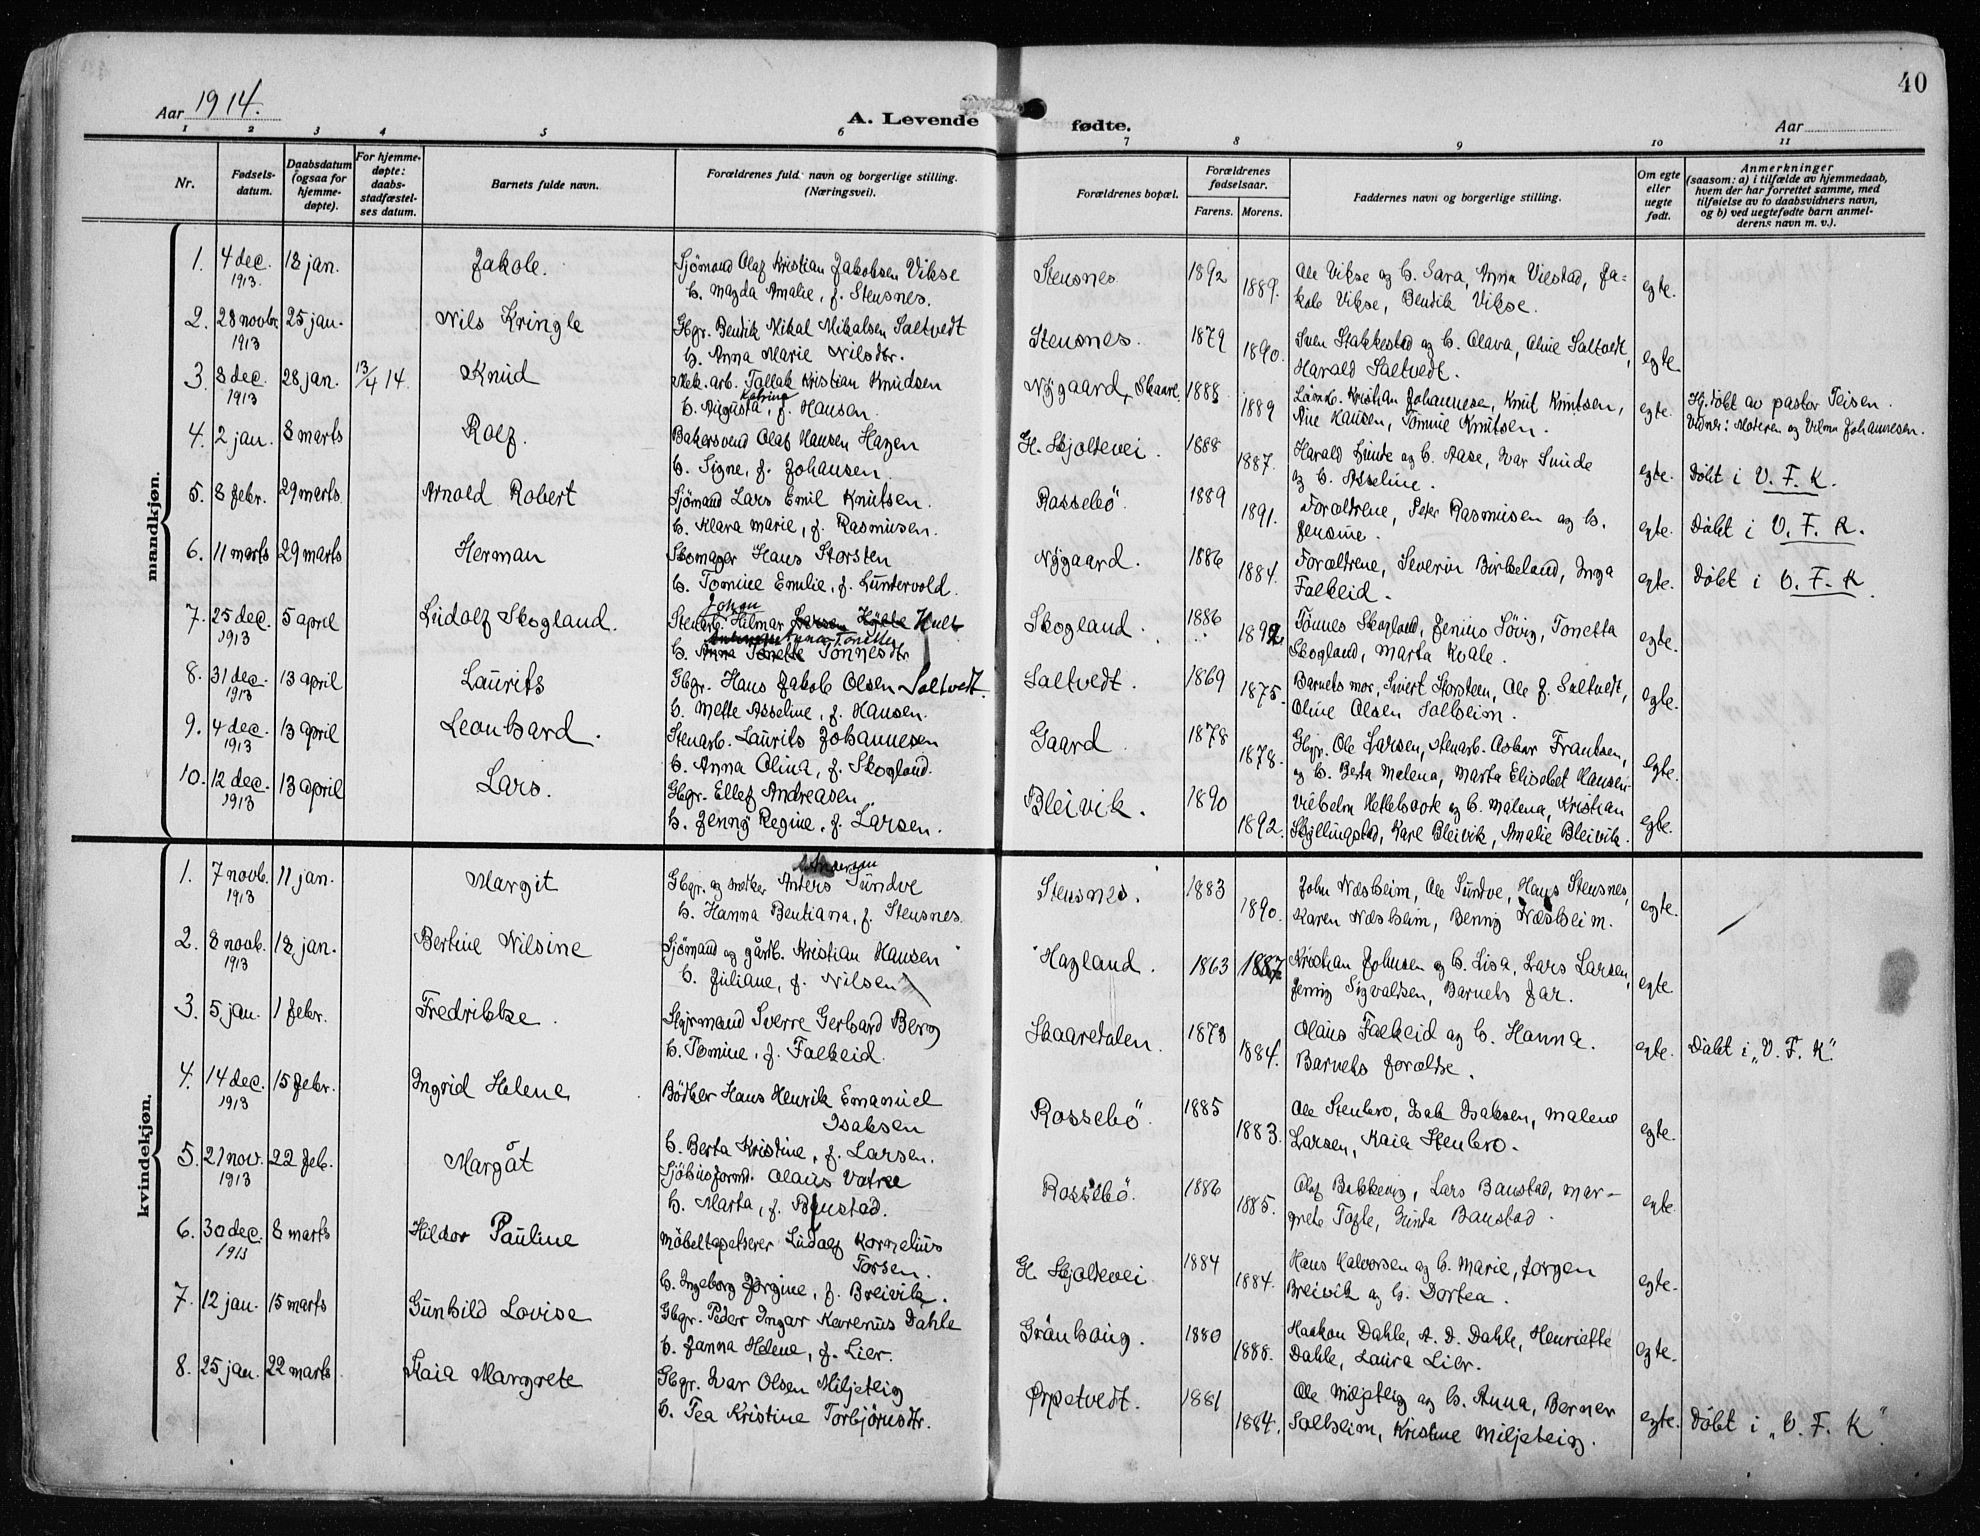 40
Aar 1914.
A. Levende fødte.
Aar
1 2 3 4 5 6 7 8 9 10 11
Nr.
Fødsels-
datum.
Daabsdatum
(ogsaa for
hjemme-
døpte).
For hjemme-
døpte:
daabs-
stadfæstel-
ses datum.
Barnets fulde navn.
Forældrenes fuld navn og borgerlige stilling.
(Næringsvei).
Forældrenes bopæl.
Forældrenes
fødselsaar.
Farens. Morens.
Faddernes navn og borgerlige stilling.
Om egte
eller
uegte
født.
Anmerkninger
(saasom: a) i tilfælde av hjemmedaab,
hvem der har forrettet samme, med
tilføielse av to daabsvidners navn,
og b) ved uegtefødte barn anmel-
derens navn m. v.).
mandkjøn.
1. 4 dec. 1913. 18 jan. Jakob. Sjömand Olaf Kristian Jakobsen Vikse Stensnes 1892 Ole Vikse og h. Sara, Anna Viestad, Ja-
h. Magda Amalie, f. Stensnes. 1889. kob Vikse, Bendik Vikse. egte.
2. 28 novbr. 1913 25 jan. Nils Kringle Gbgr. Bendik Mikal Mikalsen Saltvedt Stensnes. 1879 Sven Stakkestad og h. Olava, Oline Saltvedt,
h. Anna Marie Nilsdtr. 1890. Harald Saltvedt. egte
3. 8 dec. 1913 28 jan. 13/4 14. Knud Mek. arb. Tallak Kristian Knudsen Nygaard, Skaare. 1888 Kristian Johannese, Knut Knutsen, Hj. döbt av pastor Teisen.
h. Augusta Katrine, f. Hansen. 1889 Ane Hansen, Tomine Knutsen. egte. Vidner: Moderen og Vilma Johannesen.
4. 2 jan. 8 marts Rolf. Bakersvend Olaf Hansen Hagen H. Skjoldevei. 1888 Harald Linde og h. Aase, Ivar Sunde
h. Signe, f. Johansen. 1887. og h. Asseline. egte. Döbt i V. F. K.
5. 8 febr. 29 marts Arnold Robert Sjömand Lars Emil Knutsen. Rossebö 1889 Forældrene, Peter Rasmusen og h.
h. Klara Marie, f. Rasmusen. 1891. Jensine. egte. Döbt i V. F. K.
6. 11 marts 29 marts Herman Skomager Hans Storsten Nygaard. 1886 Forældrene, Severin Birkeland, Inga
h. Tomine Emilie, f. Lundervold. 1884. Falkeid. egte. Döbt i V. F. K.
7. 25 dec. 1913 5 april Lüdolf Skogland. Stenarb. Johan Hilmar Larsen Hult Skogland. 1886 Tönnes Skogland, Jenius Lövig, Tonetta
h. Anna Tonette Tönnesdtr 1892 Skogland, Marta Kvale. egte.
8. 31 dec. 1913 13 april Laurits Gbgr. Hans Jakob Olsen Saltvedt. Saltvedt. 1869 Barnets mor, Sivert Storsteen, Ole J. Saltvedt,
h. Mette Asseline, f. Hansen. 1875. Oline Olsen Solheim. egte.
9. 4 dec. 1913 13 april Leonhard. Stenarb. Laurits Johannesen Gaard 1878 Gbgr. Ole Larsen, stenarb. Oskar Frantsen,
h. Anna Olina, f. Skogland. 1878. og h. Berta Malena, Marta Elisebet Hansen. egte.
10. 12 dec. 1913 13 april Lars. Gbgr. Ellef Andreasen. Bleivik. 1890 Vilhelm h. Malena, Kristian
h. Jenny Regine, f. Larsen. 1892. Skjellingstad, Karl Bleivik, Amalie Bleivik. egte.
kvindekjøn.
1. 7 novb. 1913 11 jan. Margit Gbgr. og snekker Anders Sundve Stensnes. 1883 John Næsheim, Ole Sundve, Hans Stensnes,
h. Hanna Bentiana, f. Stensnes. 1890. Karen Næsheim, Benny Næsheim. egte.
2. 8 novb. 1913 18 jan. Bertine Nilsine Sjömand og gårb. Kristian Hansen Hagland. 1863 1887 Kristian Johnsen og h. Lisa, Lars Larsen,
h. Juliane, f. Nilsen Jenny Sigvaldsen, Barnets far. egte.
3. 5 jan. 1 febr. Fredrikke. Styrmand Sverre Gerhard Berg Skaaredalen. 1873 Olaus Falkeid og h. Hanna.
h. Tomine, f. Falkeid. 1884. Barnets foræld egte. Döbt i „V. F. K".
4. 14 dec. 1913 15 febr. Ingrid Helene Bödker Hans Henrik Emanuel Rossebö 1885 Ole Stenbro, Isak Isaksen, Malene
Isaksen
h. Berta Kristine, f. Larsen. 1883. Larsen, Kaia Stenbro. egte.
5. 21 nov. 1913 22 feb. Margåt Olaus Vatne Rossebö. 1886 Olaf Bakkevig, Lars Baustad, Mar-
h. Marta, f. Baustad. 1885. grete Tofte, Gunda Baustad. egte.
6. 30 dec. 1913 8 marts Hildor Pauline Möbeltapetserer Ludolf Kornelius H. Skjoldevei 1884 Hans Halvorsen og h. Marie, Jörgen
Torsen.
h. Ingeborg Jörgine, f. Breivik. 1884. Breivik og h. Dortea. egte.
7. 12 jan. 15 marts Gunhild Lovise Gbgr. Peder Ingar Karenus Dahle Grönhaug. 1880 Haakon Dahle, A. D. Dahle, Henriette
h. Janna Helene, f. Lier. 1888. Dahle, Laura Lier. egte.
8. 25 jan. 22 marts Kaia Margrete Gbgr. Ivar Olsen Miljeteig Ørpetvedt. 1881 Ole Miljeteig og h. Anna, Berner
h. Tea Kristine Torbjörnsdtr. 1884. Solheim, Kristine Miljeteig. egte. Döbt i „V. F. K".